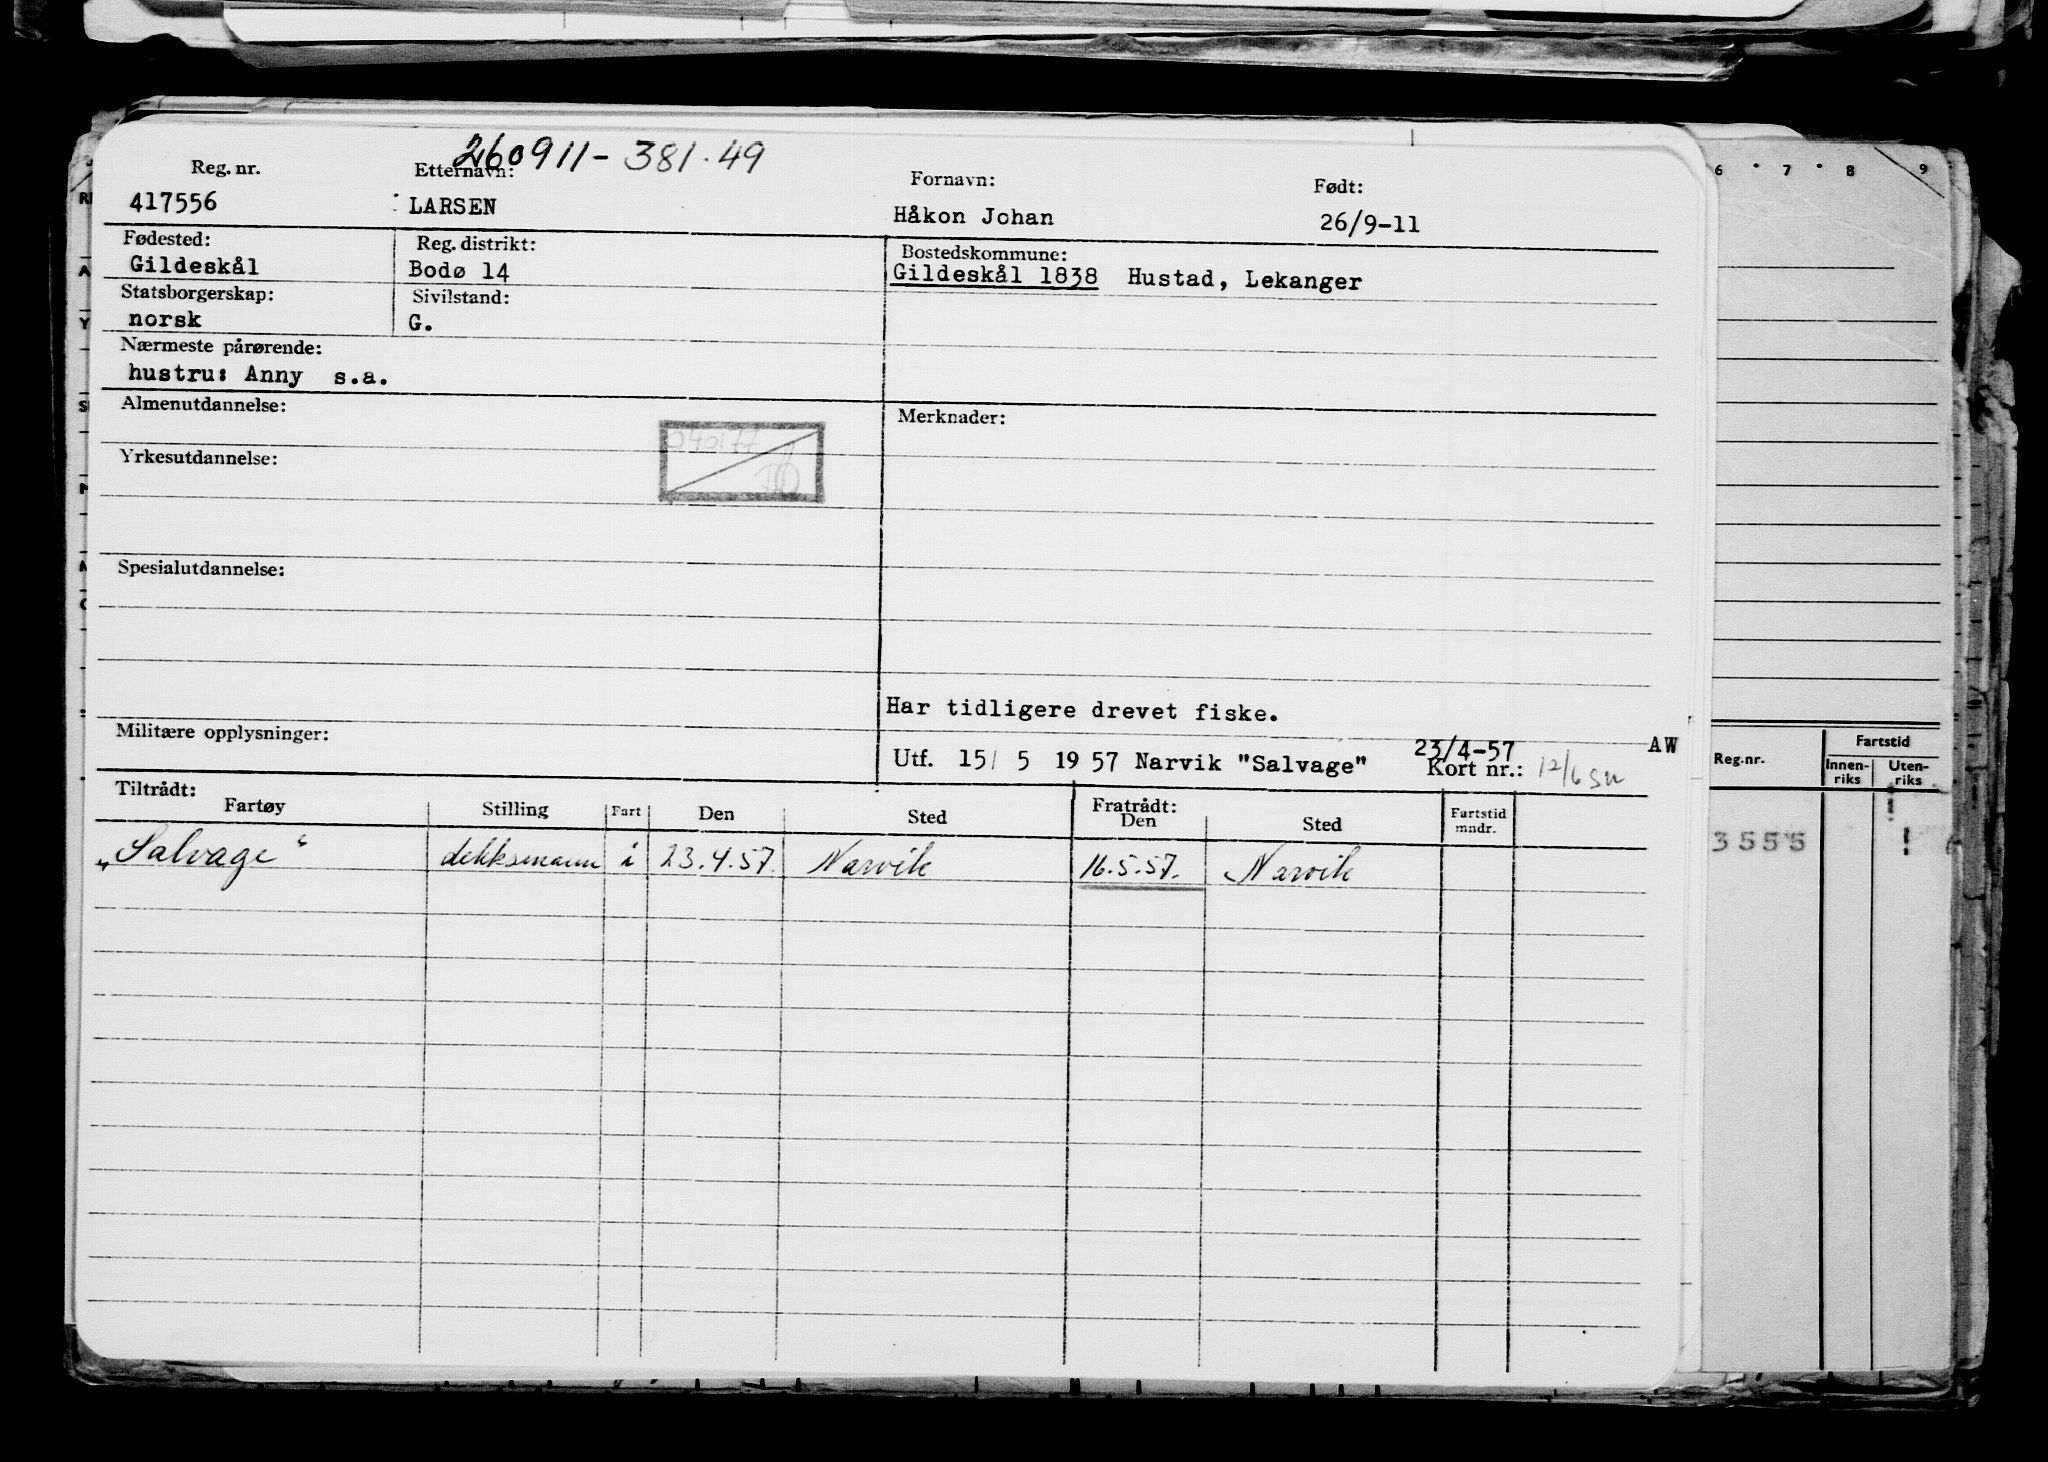 260911-381.49
Reg. nr. Etternavn: Fornavn: Født:
417556 LARSEN Håkon Johan 26/9-11
Fødested: Reg. distrikt: Bostedskommune:
Gildeskål Bodø 14 Gildeskål 1838 Hustad, Lekanger
Statsborgerskap: Sivilstand:
norsk G.
Nærmeste pårørende:
hustru: Anny s.a.
Almenutdannelse: Merknader:
Yrkesutdannelse:
Spesialutdannelse:
Har tidligere drevet fiske.
Militære opplysninger:
23/4-57 AW
Utf. 15/ 5 19 57 Narvik "Salvage" Kort nr.: 12/6 SN
Tiltrådt: Fratrådt:
Fartøy Stilling Fart Den Sted Den Sted Fartstid mndr.
"Salvage" dekksmann i 23.4.57. Narvik 16.5.57. Narvik
6 7 8 9
Reg.nr. Fartstid
Innen-riks Uten-riks
3555